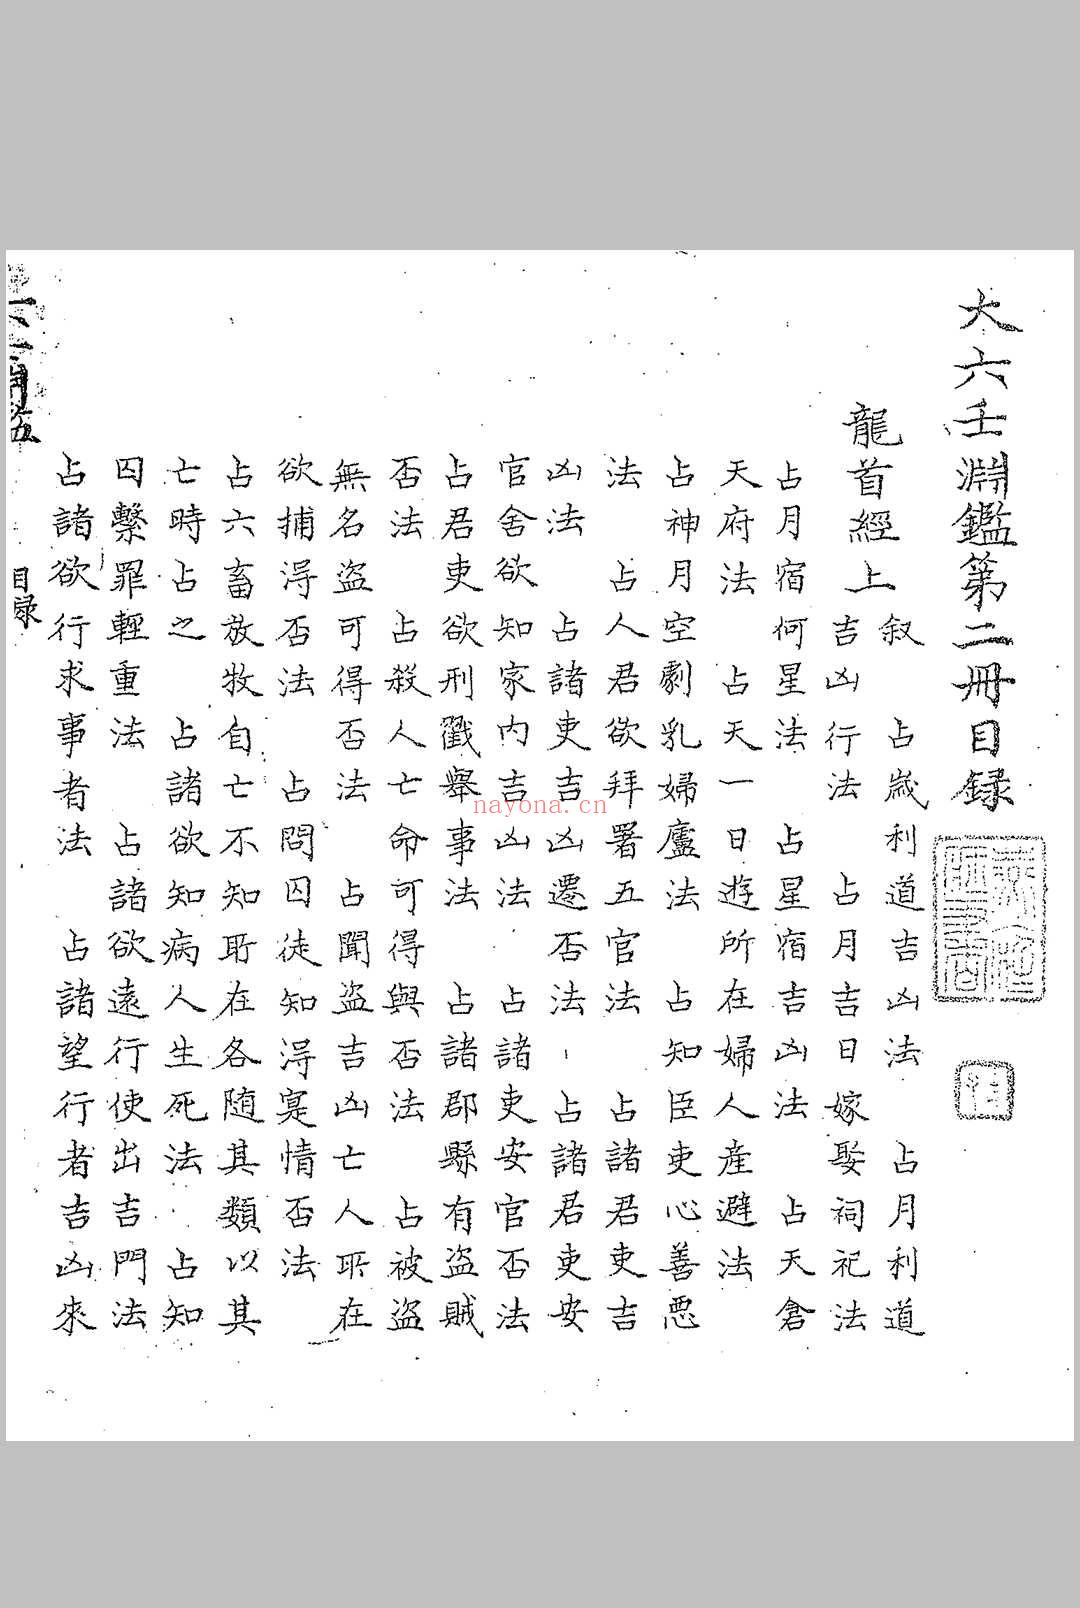 大六壬淵鑑第二冊目録
龍首經上
叙　占歲利道吉凶法　占月利道
吉凶行法　占月吉日嫁娶祠祀法
占月宿何星法　占星宿吉凶法　占天倉
天府法　占天一日遊所在婦人產避法
占神月空劇乳婦廬法　占知臣吏心善惡
法　占人君欲拜署五官法　占諸君吏吉
凶法　占諸吏吉凶遷否法　占諸君吏安
官舍欲知家內吉凶法　占諸吏安官否法
占君吏欲刑戮舉事法　占諸郡縣有盜賊
否法　占殺人亡命可得與否法　占被盜
無名盜可得否法　占聞盜吉凶亡人所在
欲捕得否法　占問囚徒知得寔情否法
占六畜放牧自亡不知所在各随其類以其
亡時占之　占諸欲知病人生死法　占知
囚繫罪輕重法　占諸欲遠行使出吉門法
占諸欲行求事者法　占諸望行者吉凶來
目录
nayona.cn